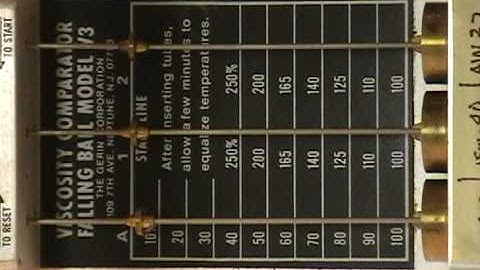 TO RESET TO START
VISCOSITY COMPARATOR
FALLING BALL MODEL V3
THE GERIN CORPORATION
109 7TH AVE. NEPTUNE, N.J.
A 1 2
START LINE
10
After inserting tubes,
20
allow a few minutes to
30 equalize temperatures.
40 250% 250%
50 200 200
60 165 165
70 140 140
80 125 125
90 110 110
100 100 100
40 AW 32